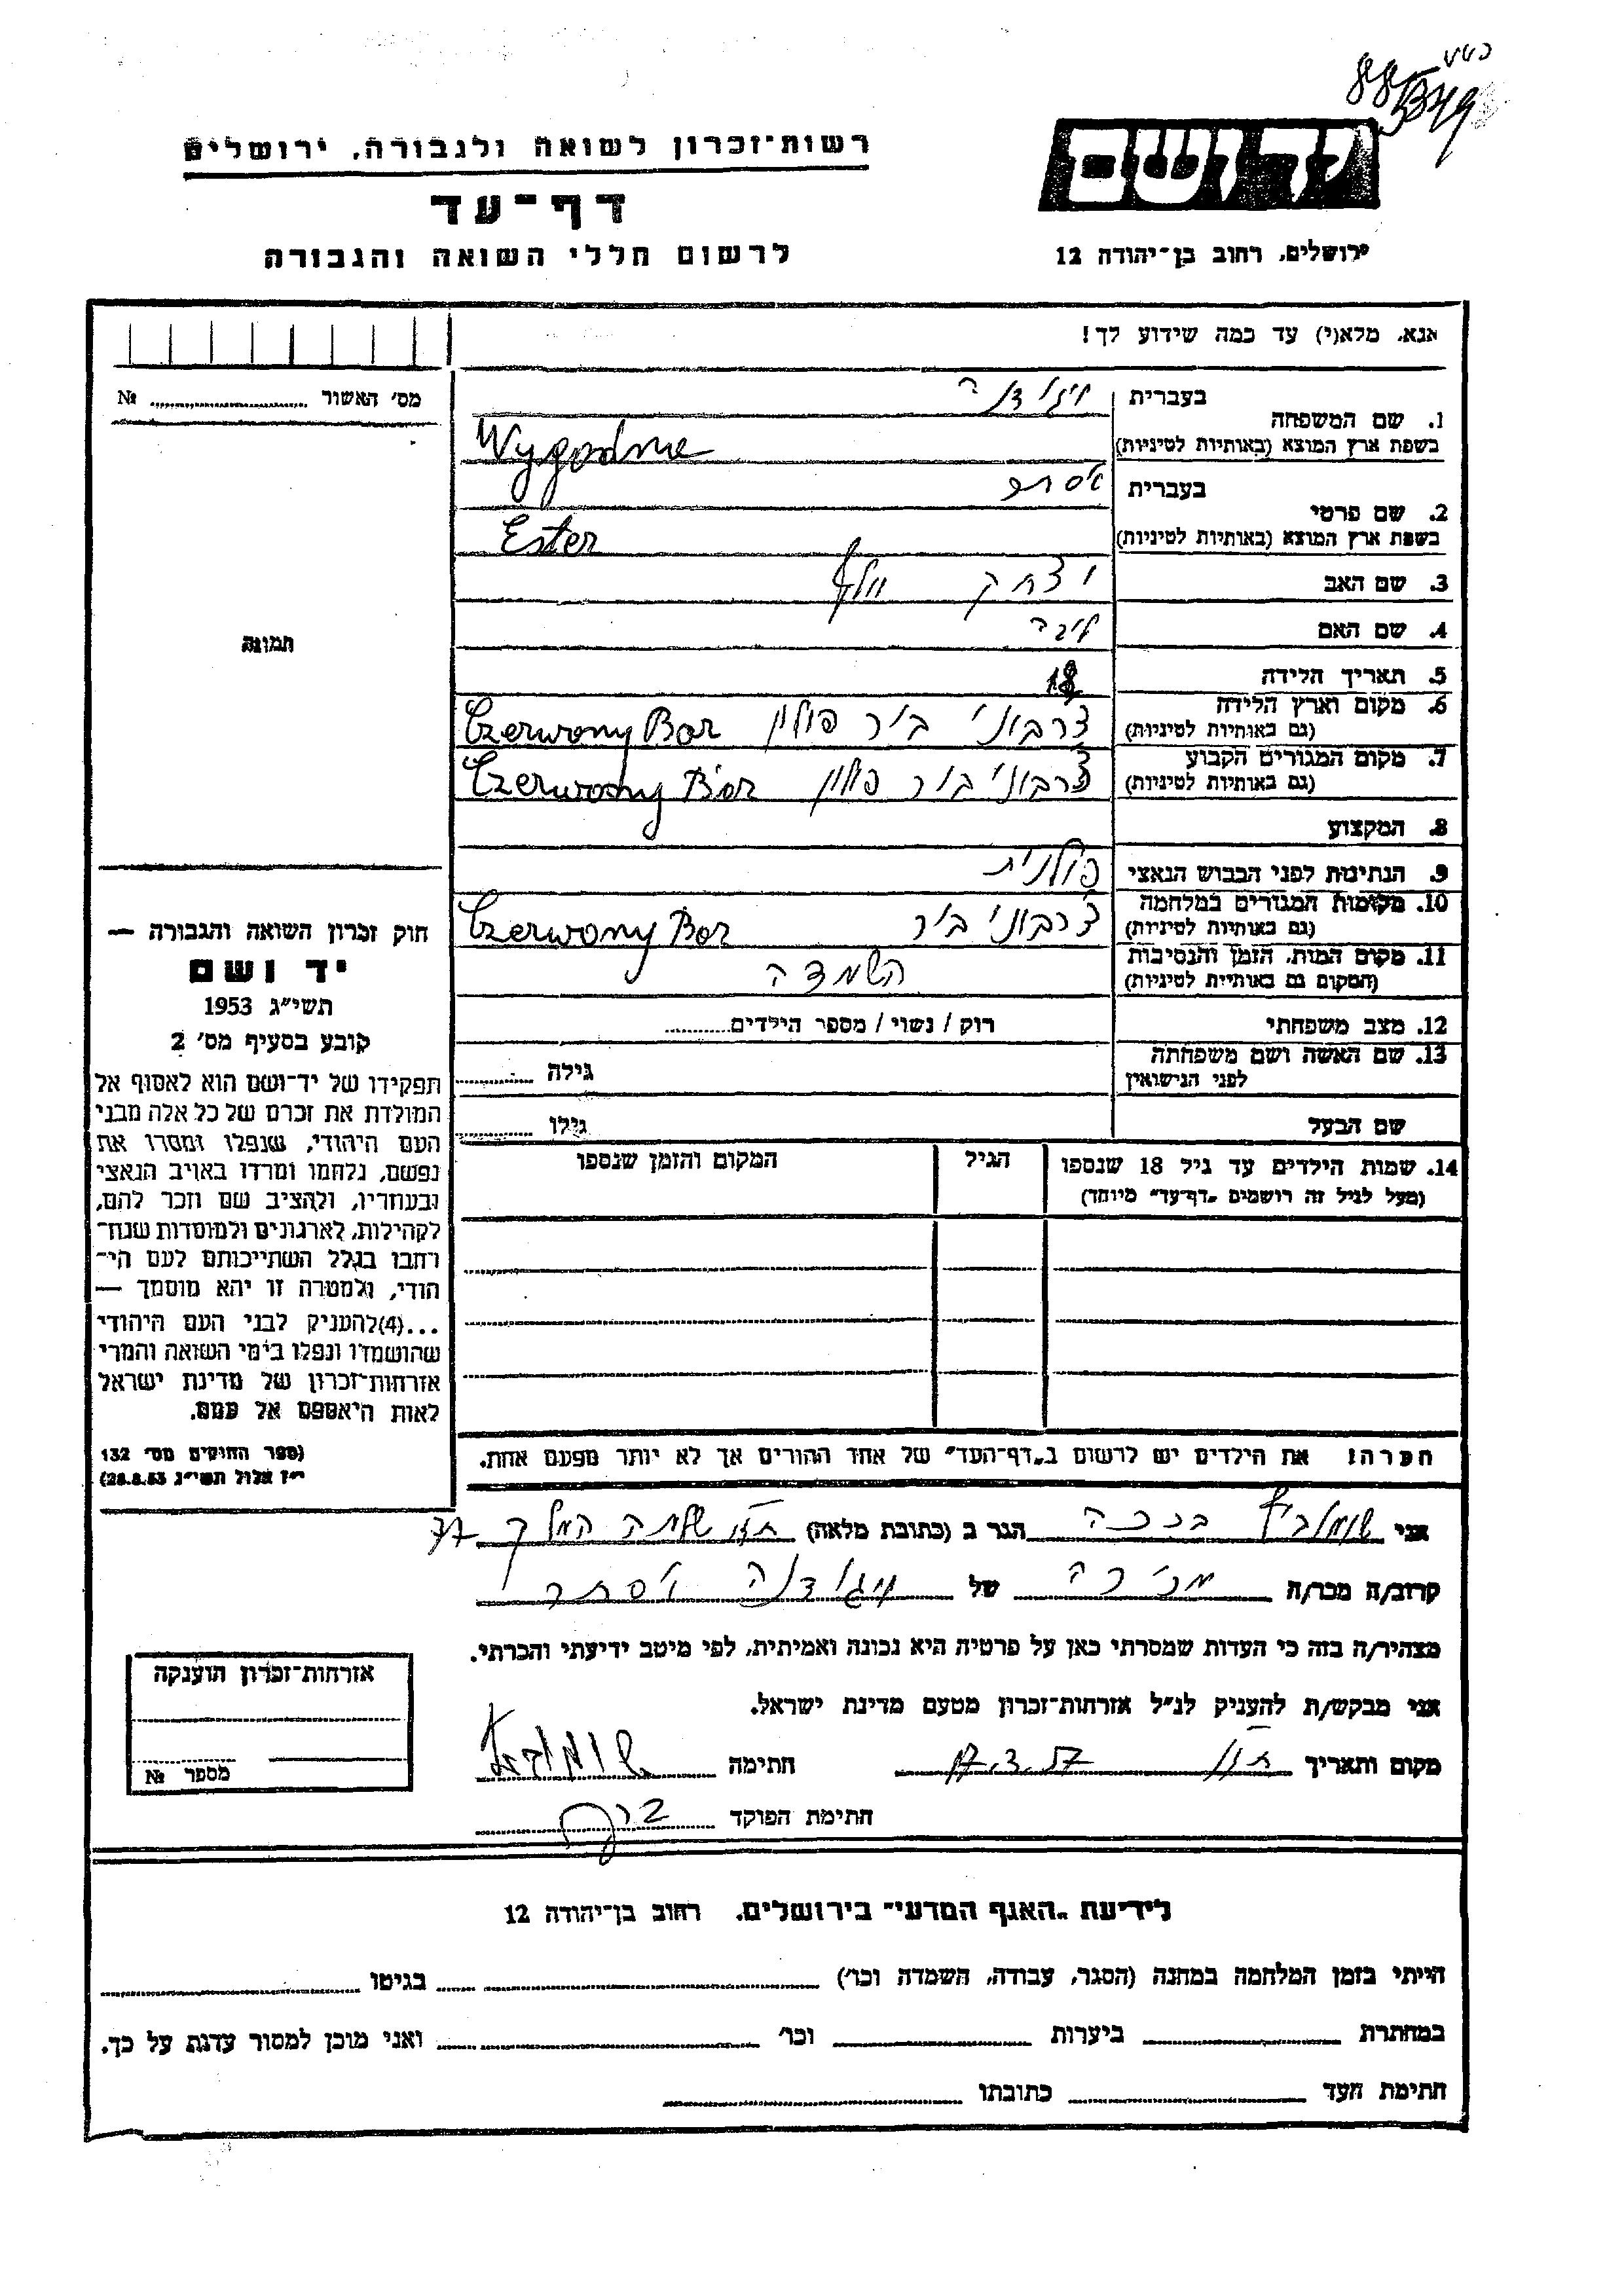 88
רשות־זכרון לשואה ולגבורה, ירושלים
יד ושם
דף־עד
לרשום חללי השואה והגבורה
ירושלים, רחוב בן־יהודה 12
אנא, מלא(י) עד כמה שידוע לך!
מס׳ האשור ........ №
1. שם המשפחה
בעברית ויגודנה
בשפת ארץ המוצא (באותיות לטיניות) Wygodna
2. שם פרטי
בעברית אסתר
בשפת ארץ המוצא (באותיות לטיניות) Ester
3. שם האב יצחק וולף
4. שם האם ליבה
תמונה
5. תאריך הלידה 18
6. מקום וארץ הלידה
(גם באותיות לטיניות) צ׳רבוני בור פולין Czerwony Bor
7. מקום המגורים הקבוע
(גם באותיות לטיניות) צ׳רבוני בור פולין Czerwony Bór
8. המקצוע
9. הנתינות לפני הכבוש הנאצי פולנית
10. מקומות המגורים במלחמה
(גם באותיות לטיניות) צ׳רבוני בור Czerwony Bór
11. מקום המות, הזמן והנסיבות
(המקום גם באותיות לטיניות) השמדה
12. מצב משפחתי רוק / נשוי / מספר הילדים
13. שם האשה ושם משפחתה
לפני הנישואין גילה
שם הבעל גילו
14. שמות הילדים עד גיל 18 שנספו
(מעל לגיל זה רושמים „דף־עד״ מיוחד)
הגיל
המקום והזמן שנספו
חוק זכרון השואה והגבורה —
יד ושם
תשי״ג 1953
קובע בסעיף מס׳ 2
תפקידו של יד־ושם הוא לאסוף אל
המולדת את זכרם של כל אלה מבני
העם היהודי, שנפלו ומסרו את
נפשם, נלחמו ומרדו באויב הנאצי
ובעוזריו, ולהציב שם וזכר להם,
לקהילות, לארגונים ולמוסדות שנח־
רבו בגלל השתייכותם לעם הי־
הודי, ולמטרה זו יהא מוסמך —
...(4)להעניק לבני העם היהודי
שהושמדו ונפלו בימי השואה והמרי
אזרחות־זכרון של מדינת ישראל
לאות היאספם אל עמם.
(ספר החוקים מס׳ 132
י״ז אלול תשי״ג 28.8.53)
הערה! את הילדים יש לרשום ב„דף־העד״ של אחד ההורים אך לא יותר מפעם אחת.
אני הגר ב (כתובת מלאה) שלמה המלך
קרוב/ה מכר/ה מכירה של ויגודנה אסתר
מצהיר/ה בזה כי העדות שמסרתי כאן על פרטיה היא נכונה ואמיתית, לפי מיטב ידיעתי והכרתי.
אני מבקש/ת להעניק לנ״ל אזרחות־זכרון מטעם מדינת ישראל.
מקום ותאריך 17.3.57 חתימה
חתימת הפוקד
אזרחות־זכרון הוענקה
מספר №
לידיעת „האגף המדעי״ בירושלים, רחוב בן־יהודה 12
הייתי בזמן המלחמה במחנה (הסגר, עבודה, השמדה וכו׳) בגיטו
במחתרת ביערות וכו׳ ואני מוכן למסור עדות על כך.
חתימת העד כתובתו